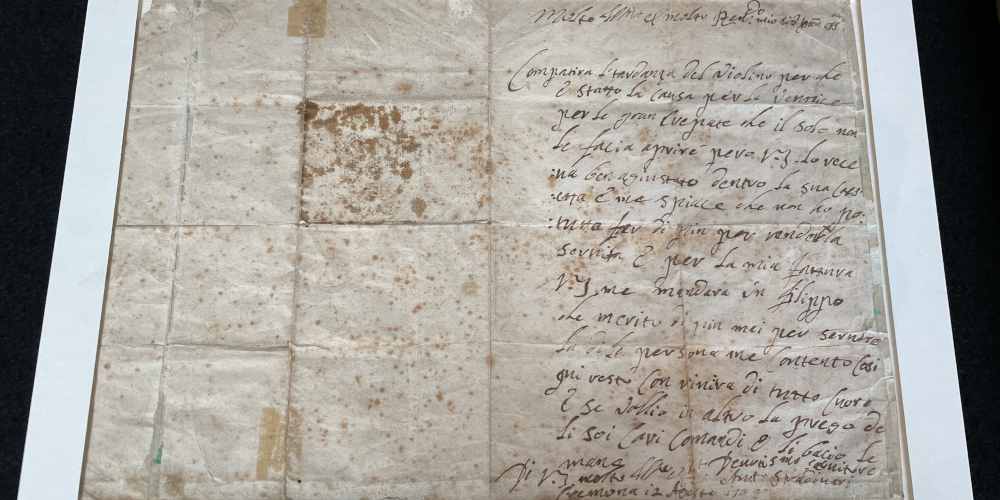 Molto Ill.re e molto Rev.do mio sig.
Compatira la tardanza del violino per che
è statto la causa per la vernice
per le gran crepate che il sole non
le facia aprire pero V.S. lo rece
:va ben agiustato dentro la sua Cas
:etta e me spiace che non ho po
:tutto far di piu per renderla
servita e per la mia fatura
V.S. me mandara un filippo
che merito di piu mai per servire
la di le persona me contento Cosi
qui resto con vivira di tutto Cuore
E se vallio in altro la prego de
li soi Cari Comandi e li bacio le
mane
Di V.S. molto Ill.re Servitore
Cremona 12 Agosto